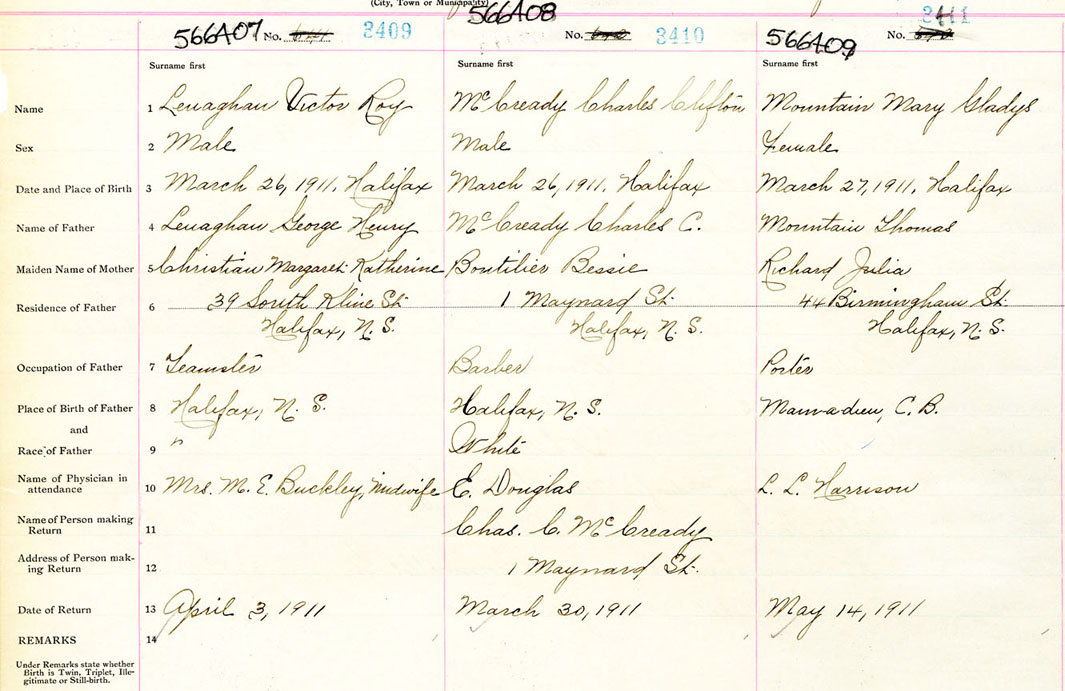 (City, Town or Municipality)
566A07 No. 2409 566A08 No. 2410 566A09 No. 2411
Surname first Surname first Surname first
Name 1 Lenaghan Victor Roy McCready Charles Clifton Mountain Mary Gladys
Sex 2 Male Male Female
Date and Place of Birth 3 March 26, 1911. Halifax March 26, 1911. Halifax March 27, 1911. Halifax
Name of Father 4 Lenaghan George Henry McCready Charles C. Mountain Thomas
Maiden Name of Mother 5 Christian Margaret Katherine Boutilier Bessie Richard Julia
Residence of Father 6 39 South Kline St. 1 Maynard St. 44 Birmingham St.
Halifax, N.S. Halifax, N.S. Halifax, N.S.
Occupation of Father 7 Teamster Barber Porter
Place of Birth of Father 8 Halifax, N.S. Halifax, N.S. C.B.
and
Race of Father 9 " White
Name of Physician in
attendance 10 Mrs. M. E. Buckley, Midwife E. Douglas L. L. Harrison
Name of Person making
Return 11 Chas. C. McCready
Address of Person mak-
ing Return 12 1 Maynard St.
Date of Return 13 April 3, 1911 March 30, 1911 May 14, 1911
REMARKS 14
Under Remarks state whether
Birth is Twin, Triplet, Ille-
gitimate or Still-birth.